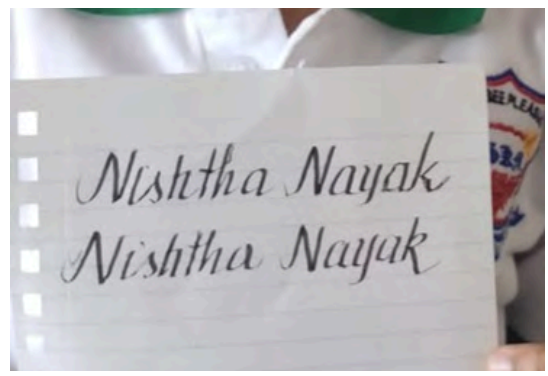 Nishtha Nayak
Nishtha Nayak